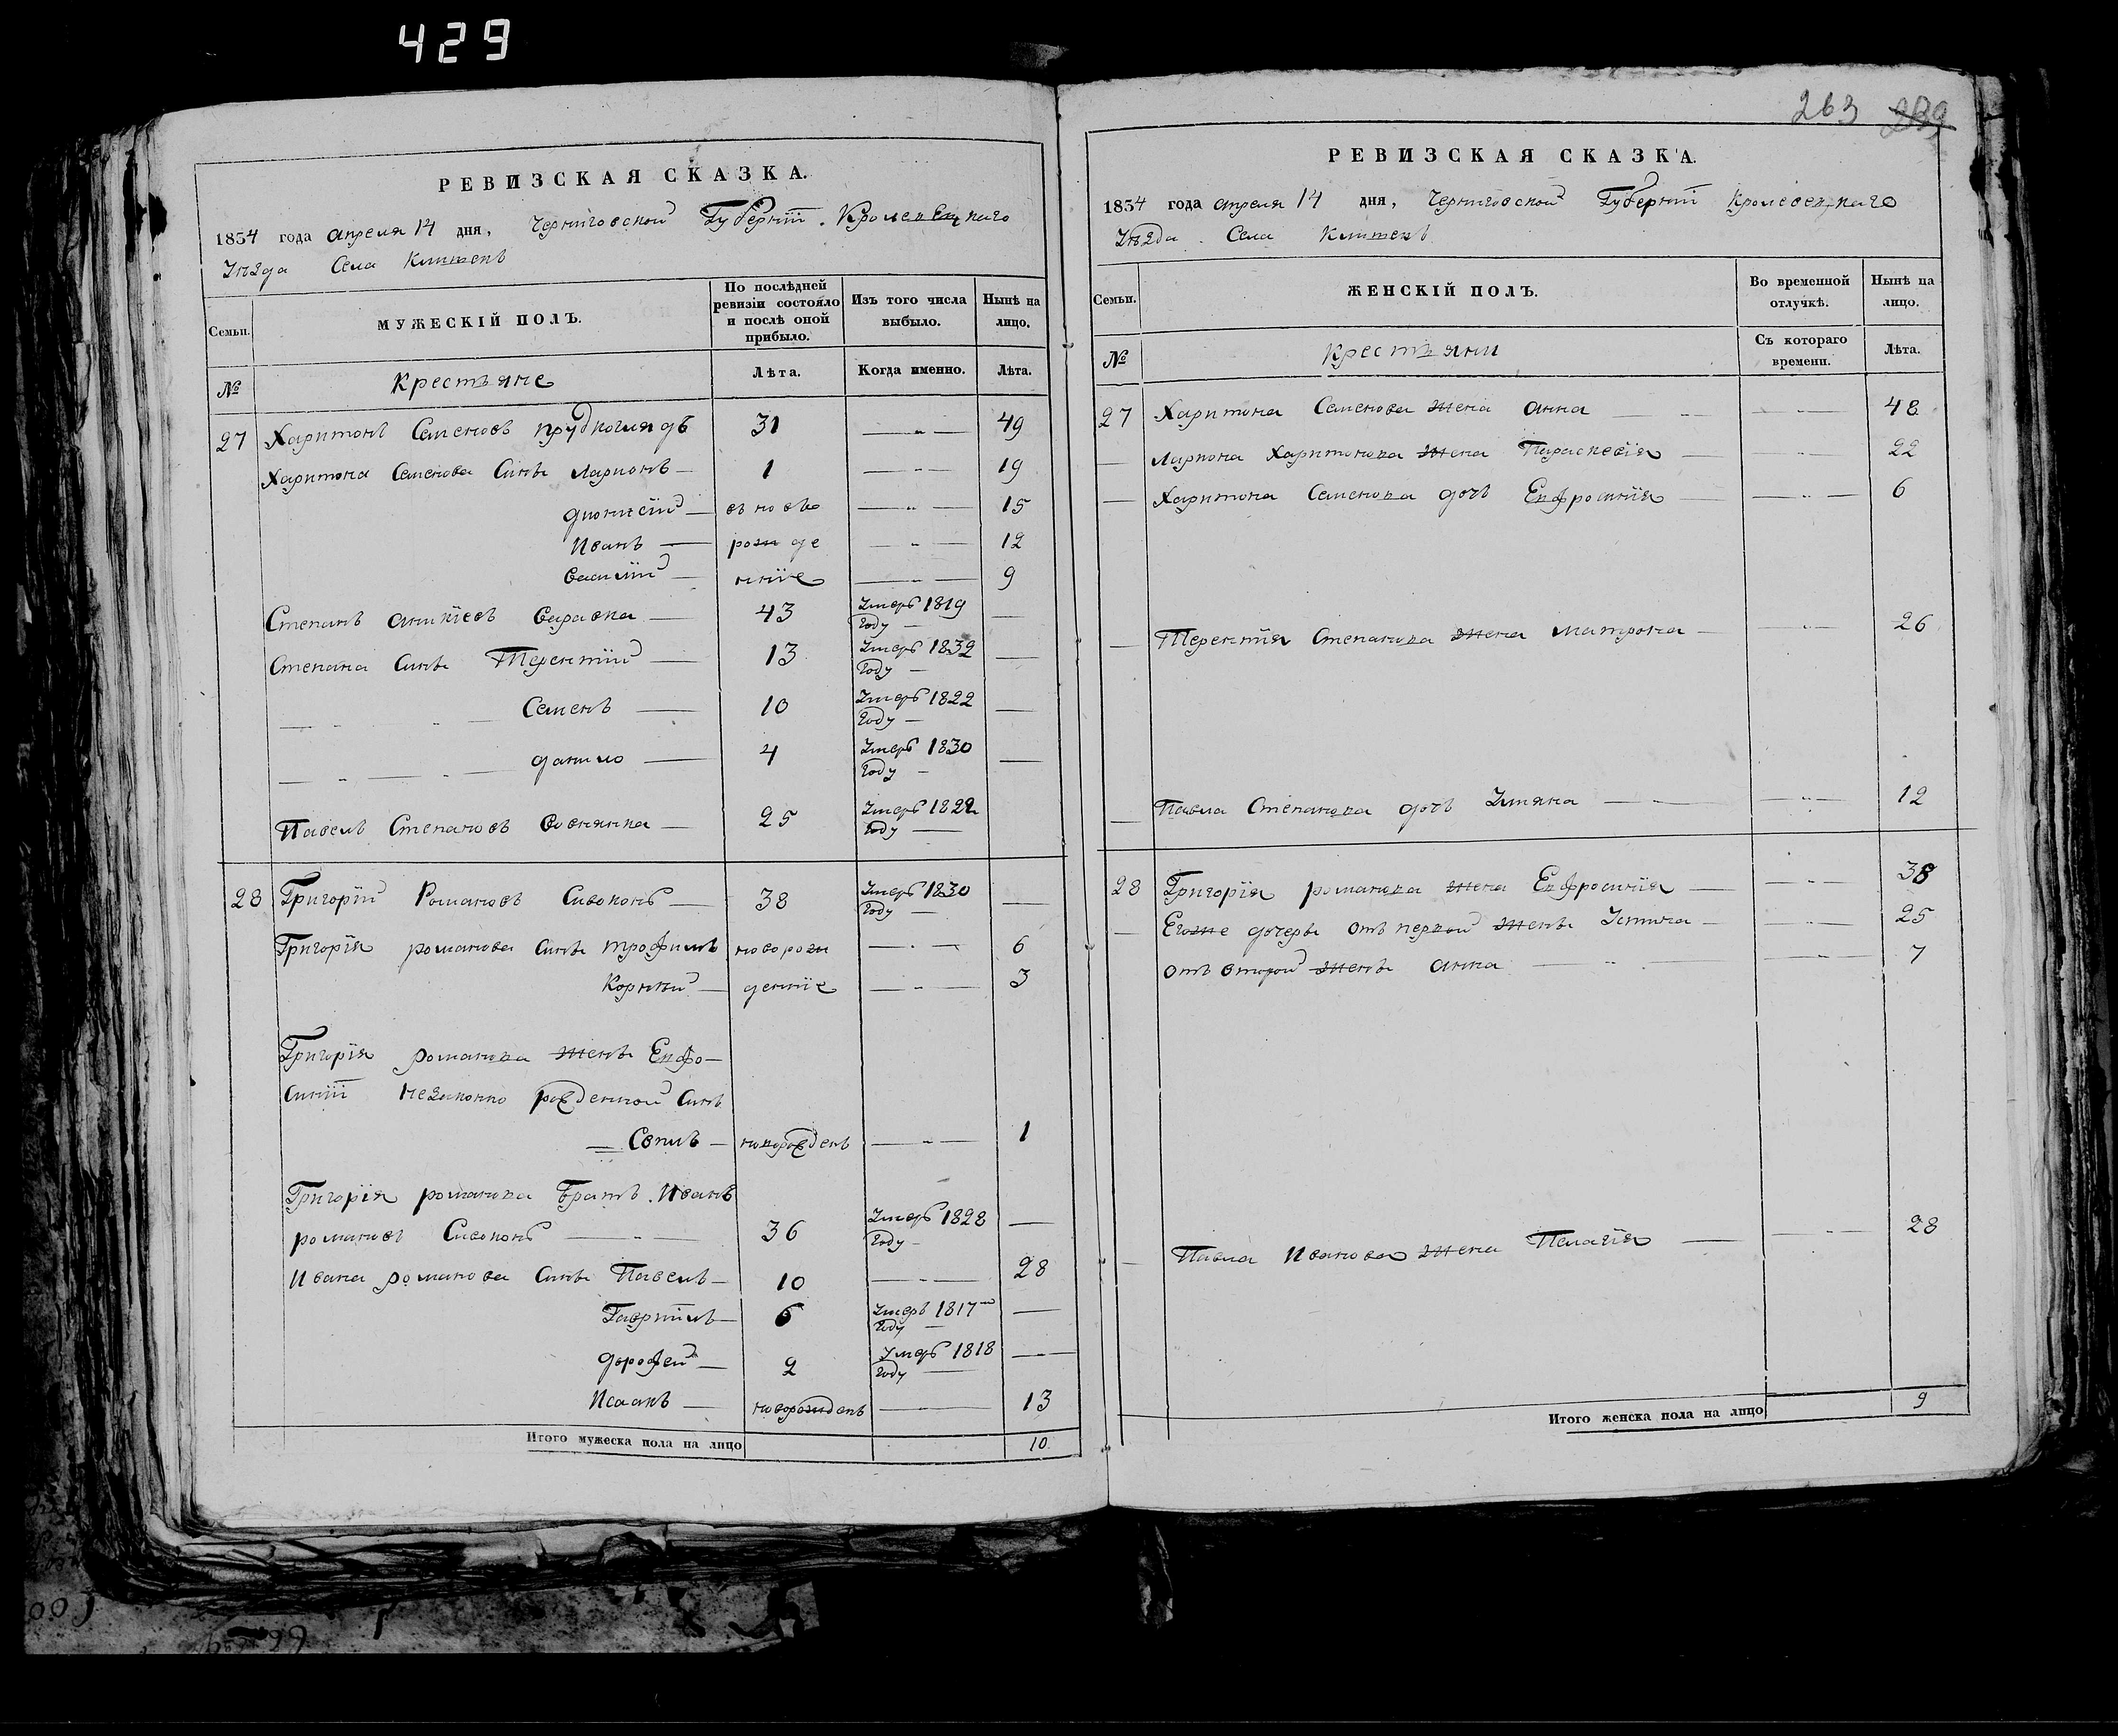 429
РЕВИЗСКАЯ СКАЗКА.
1834 года апреля 14 дня, Черниговской Губернїи. Кролевецкаго
Уѣзда Села
Семьи.
МУЖЕСКІЙ ПОЛЪ.
По послѣдней ревизіи состояло и послѣ оной прибыло.
Изъ того числа выбыло.
Нынѣ на лицо.
№
Крестьяне
Лѣта.
Когда именно.
Лѣта.
27 Харитонъ Семеновъ 31 — „ — 49
Харитона Семенова Синъ Ларионъ — 1 — „ — 19
дионисїй — вновь — „ — 15
Иванъ — рожде — „ — 12
василїй — ннїе — „ — 9
Степанъ аникїевъ — 43 Умеръ 1819 Году — —
Степана Синъ Терентїй — 13 Умеръ 1832 Году — —
— „ — Семенъ — 10 Умеръ 1822 Году — —
— „ — „ — данило — 4 Умеръ 1830 Году — —
Павелъ Степановъ — 25 Умеръ 1822 Году —
28 Григорїй Романовъ Сивоконь — 38 Умеръ 1830 Году — —
Григорїя романова Синъ трофимъ новорож — „ — 6
Корнѣй — денїе — „ — 3
Григорїя романова женѣ Евфо—
синїи незаконно рожденной Синъ
— — новорожденъ — „ — 1
Григорїя романова Братъ Иванъ
романовъ Сивоконь — „ — 36 Умеръ 1828 Году — —
Ивана романова Синъ Павелъ — 10 — „ — 28
Гаврїилъ — 6 Умеръ 1817 Году — —
дорофей — 2 Умеръ 1818 Году — —
Исаакъ — новорожденъ — 13
Итого мужеска пола на лицо 10.
263
РЕВИЗСКАЯ СКАЗКА.
1834 года апреля 14 дня, Черниговской Губернїи Кролевецкаго
Уѣзда. Села
Семьи.
ЖЕНСКІЙ ПОЛЪ.
Во временной отлучкѣ.
Нынѣ на лицо.
№
Крестьяни
Съ котораго времени.
Лѣта.
27 Харитона Семенова жена анна — „ — 48
— Лариона Харитонова жена Параскевїя — „ — 22
— Харитона Семенова дочь Евфросинїя — „ — 6
— Терентїя Степанова жена матрона — „ — 26
— Павла Степанова дочь Уляна — „ — 12
28 Григорїя романова жена Евфросинїя — „ — 38
— Егоже дочеры отъ первой женѣ — „ — 25
отъ второй женѣ анна — „ — 7
— Павла Иванова жена Пелагїя — „ — 28
Итого женска пола на лицо 9